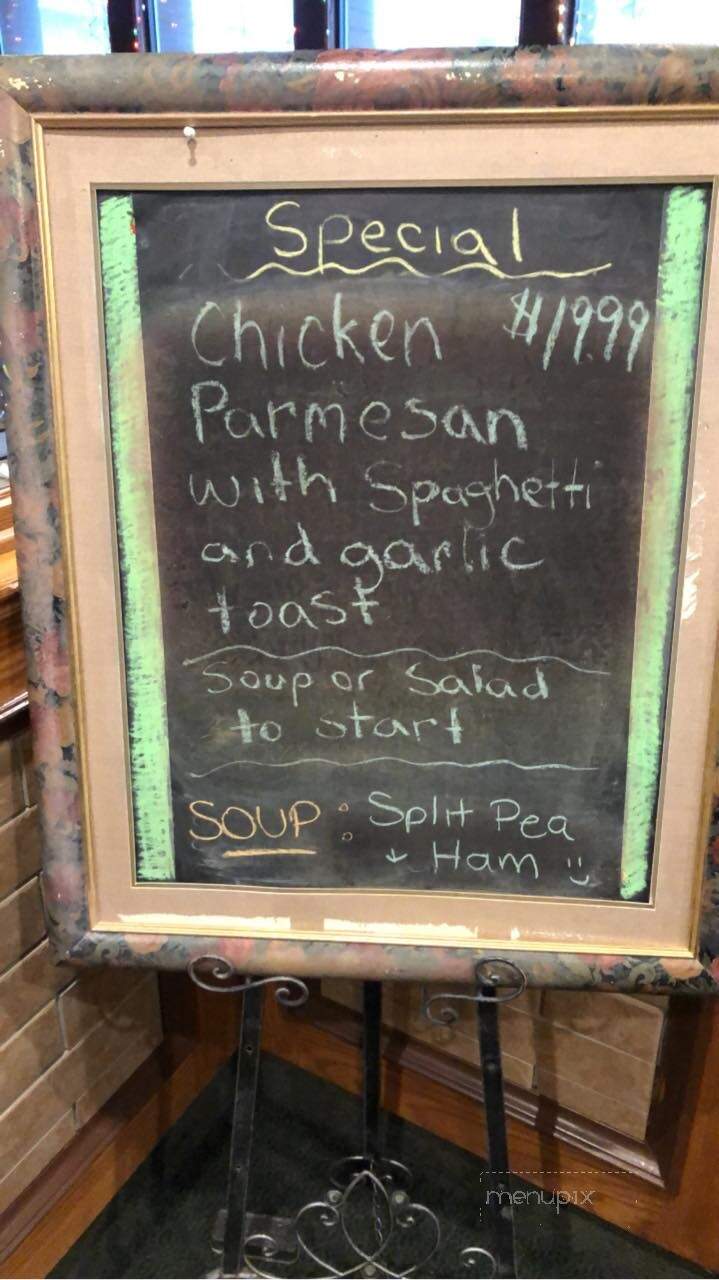 Special
Chicken $19.99
Parmesan
with Spaghetti
and garlic
toast
Soup or Salad
to start
SOUP: Split Pea
+ Ham
menupix